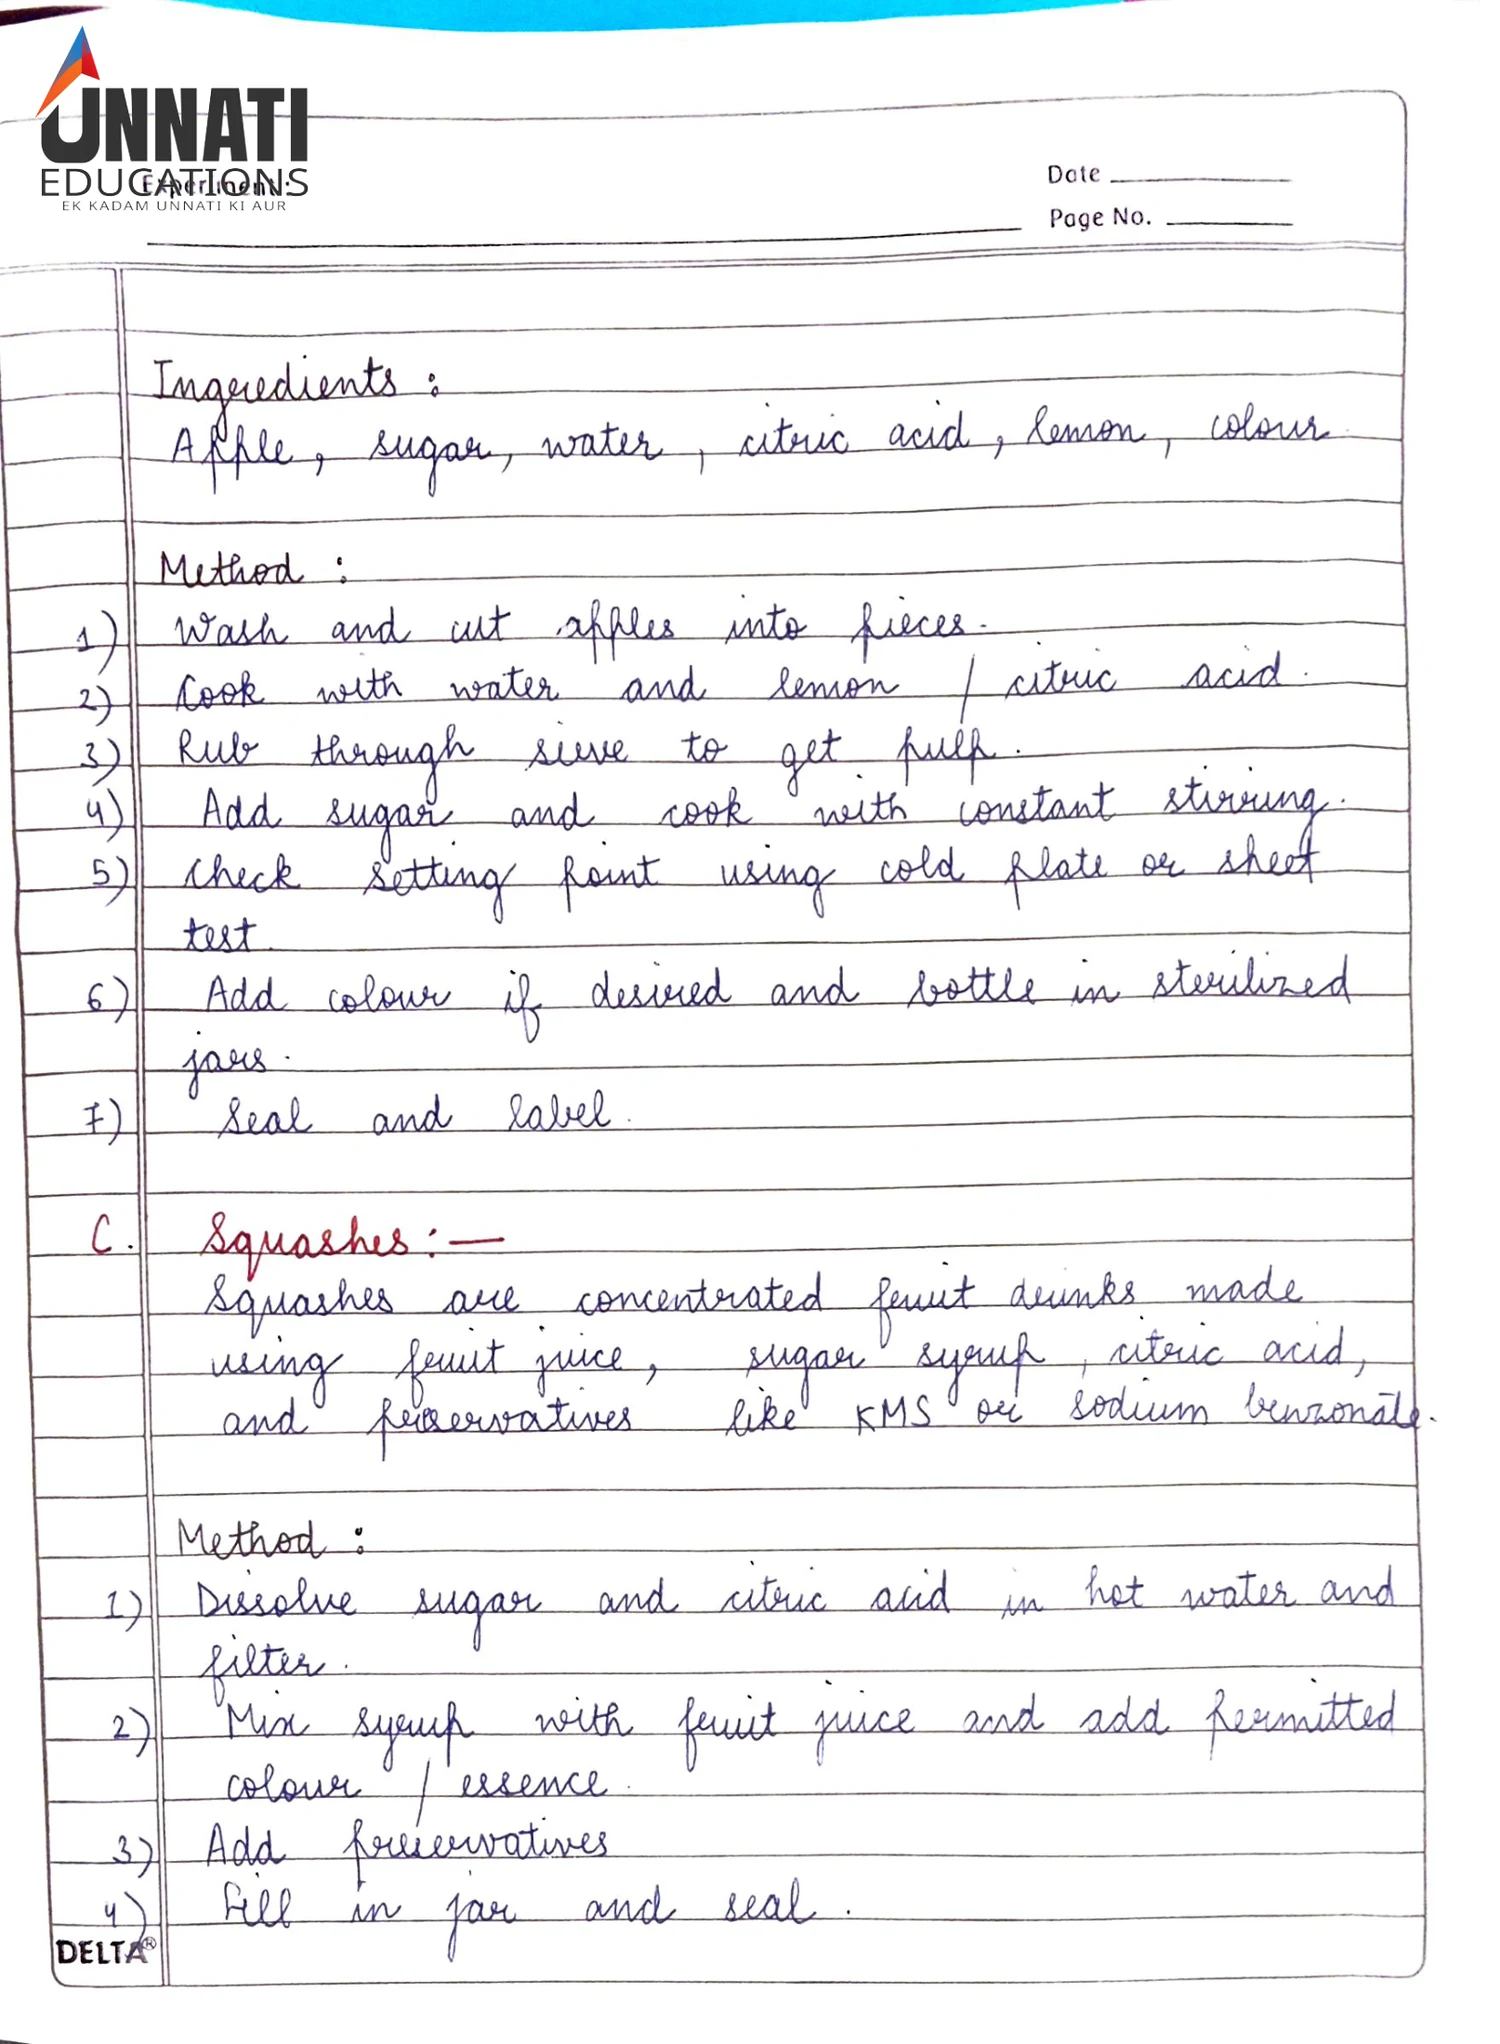 UNNATI
EDUCATIONS
EK KADAM UNNATI KI AUR
Experiment:
Date
Page No.
Ingredients :
Apple, sugar, water, citric acid, lemon, colour
Method :
1) Wash and cut apples into pieces.
2) Cook with water and lemon / citric acid.
3) Rub through sieve to get pulp.
4) Add sugar and cook with constant stirring.
5) Check setting point using cold plate or sheet
test.
6) Add colour if desired and bottle in sterilized
jars.
7) Seal and label.
C. Squashes :—
Squashes are concentrated fruit drinks made
using fruit juice, sugar syrup, citric acid,
and preservatives like KMS or sodium benzonate.
Method :
1) Dissolve sugar and citric acid in hot water and
filter.
2) Mix syrup with fruit juice and add permitted
colour / essence.
3) Add preservatives
4) Fill in jar and seal.
DELTA®